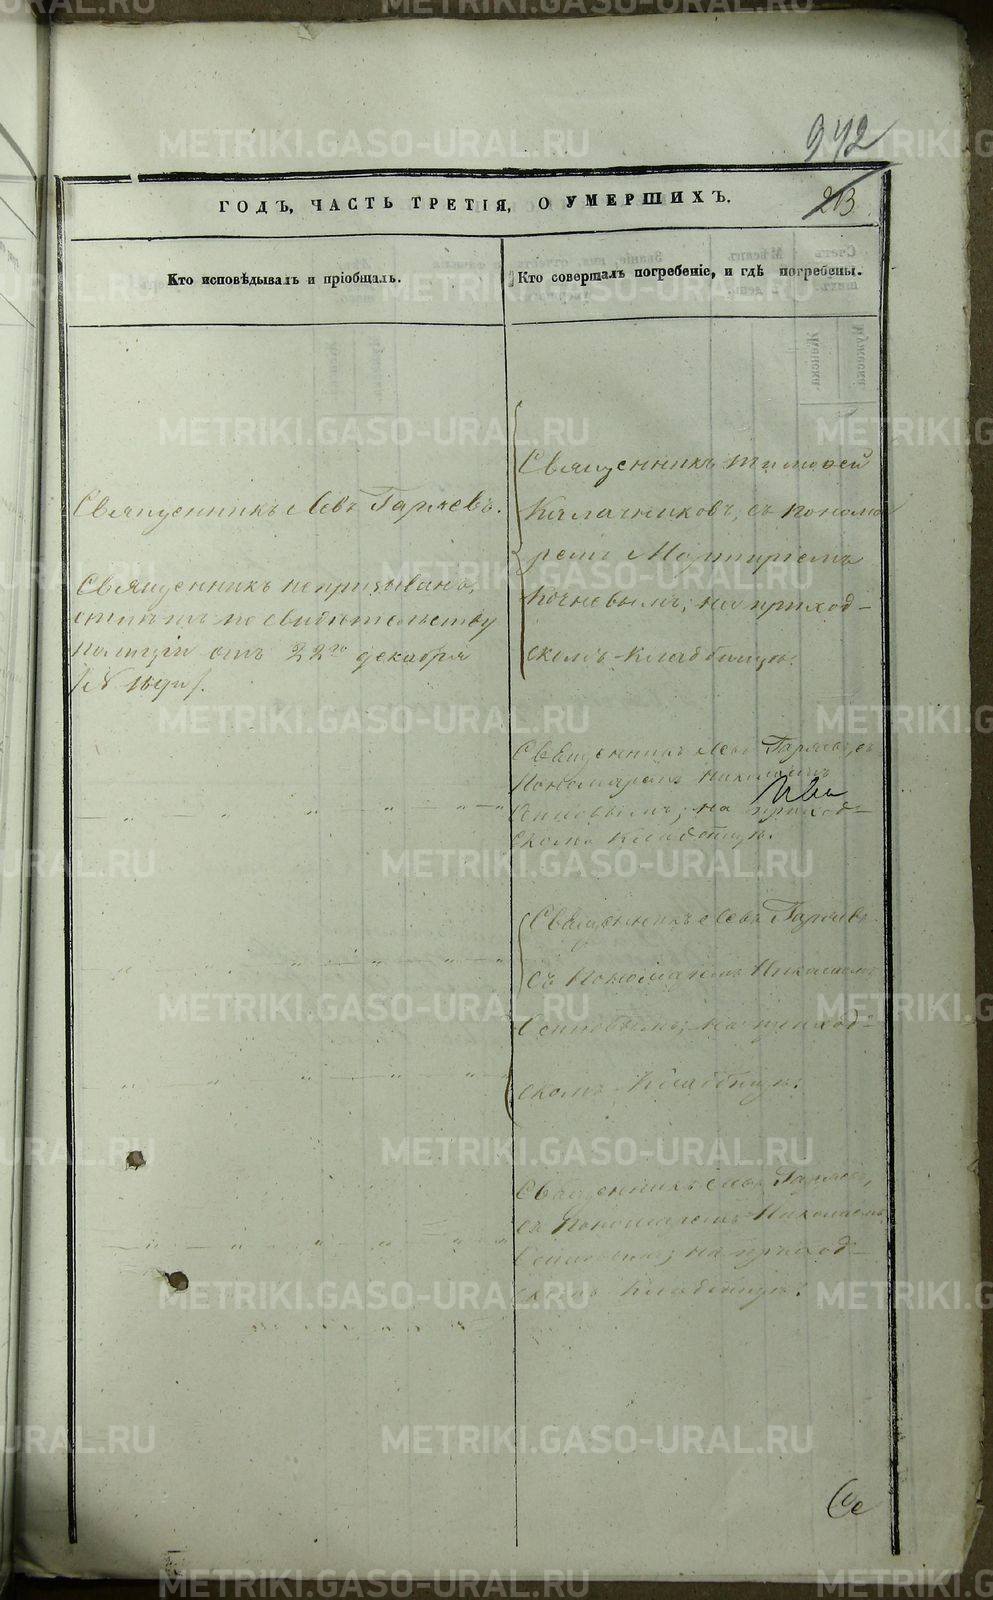 942
213
ГОДЪ, ЧАСТЬ ТРЕТІЯ, О УМЕРШИХЪ.
Кто исповѣдывалъ и пріобщалъ.
Кто совершалъ погребеніе, и гдѣ погребены.
Священникъ Левъ Гаряевъ.
Священникъ непризыванъ,
по свидѣтельству
полиціи отъ 22го декабря
Священникъ Тимофей
Калачниковъ, съ понома
ремъ Мартиріемъ
на приход-
скомъ кладбищѣ.
Священникъ Левъ Гаряевъ, съ
Пономаремъ Николаемъ
на приход-
скомъ кладбищѣ.
Священникъ Левъ Гаряевъ
съ Пономаремъ Николаемъ
на приход-
скомъ Кладбищѣ.
Священникъ Левъ Гаряевъ,
съ Пономаремъ Николаемъ
на приход-
скомъ Кладбищѣ.
METRIKI.GASO-URAL.RU